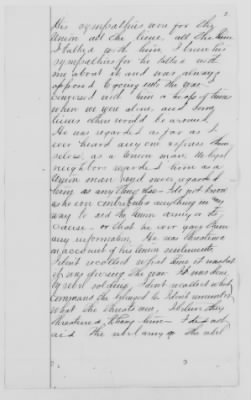 2
His sympathies were for the
Union all the time, all the time
I talked with him. I knew his
sympathies for he talked with
me about it and was always
opposed to going into the war.
Conversed with him a heap of times
when we were alone, and some
times others would be around.
He was regarded as far as I
ever heard any one express them
selves, as a Union man. His loyal
neighbors regarded him as a
Union man. Was never regarded
being as any thing else. I do not know
as he ever contributed anything in any
way to aid the Union army or the
cause - or that he ever gave them
any information. He was threatened
on account of his Union sentiments
I don't recollect what time it was but
it was during the war. It was done
by rebel soldiers, I dont recollect what
command they belonged to. I dont remember
what the threats was, I know they
threatened to hang him - I did not
aid the rebel army or the rebel